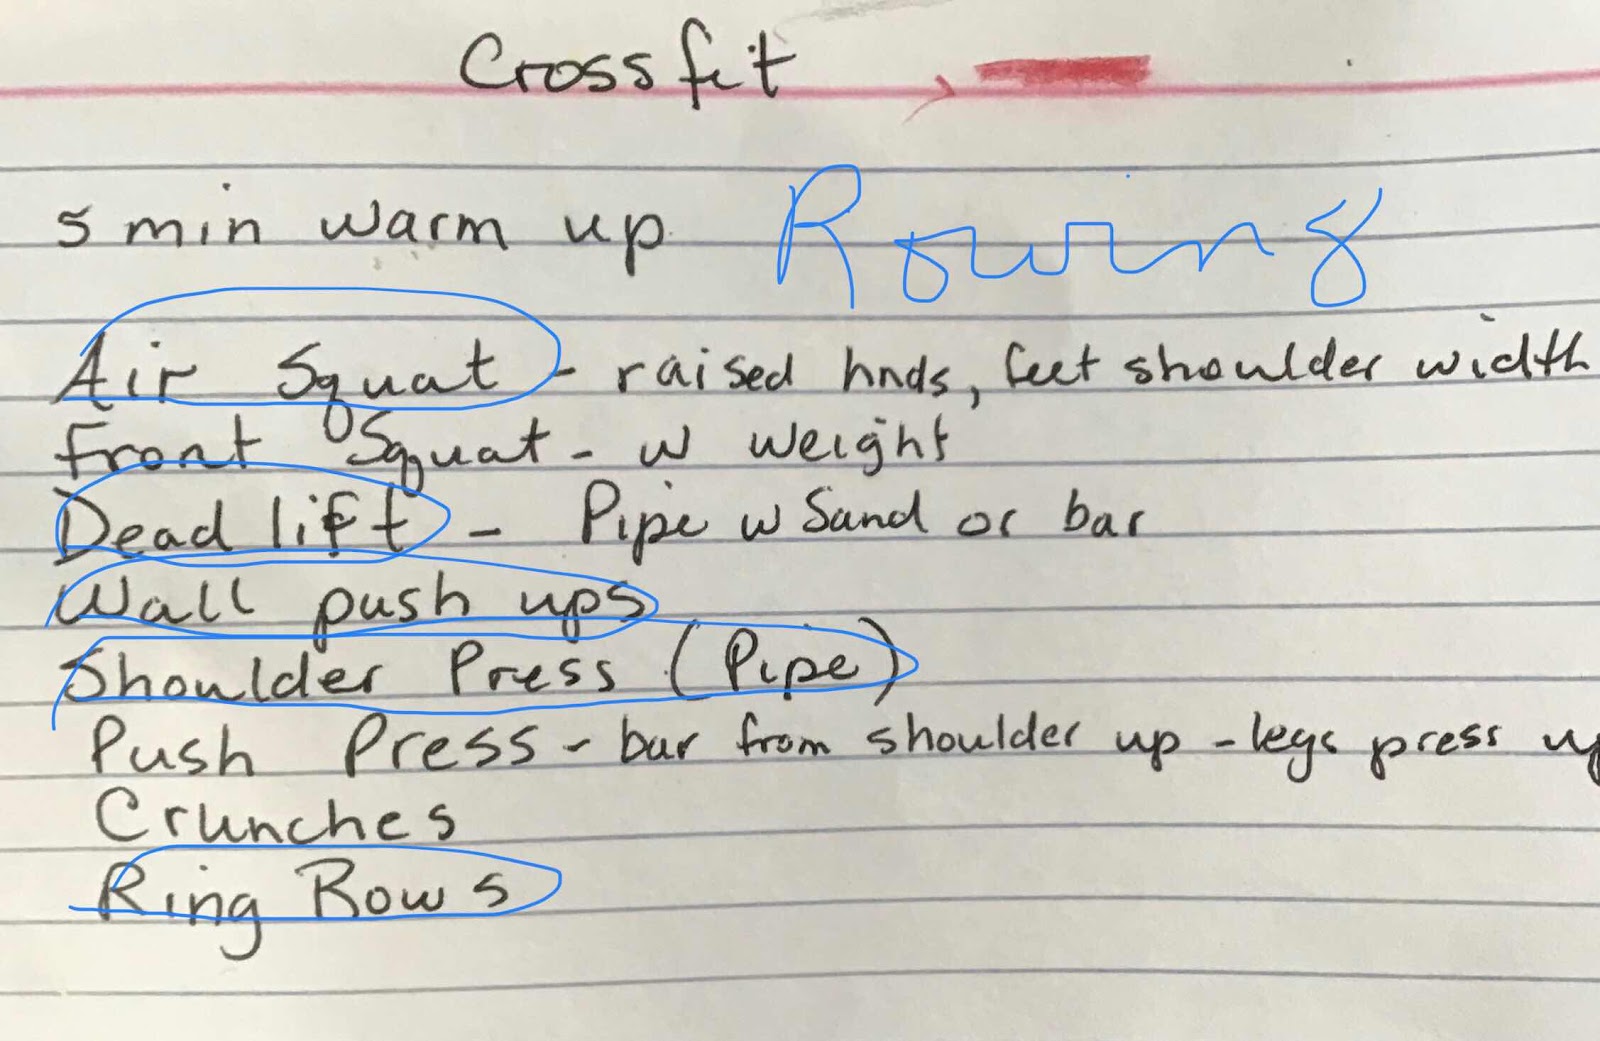 Crossfit
5 min warm up Rowing
Air Squat - raised hnds, feet shoulder width
Front Squat - w weight
Dead lift - Pipe w Sand or bar
Wall push ups
Shoulder Press (Pipe)
Push Press - bar from shoulder up - legs press up
Crunches
Ring Rows